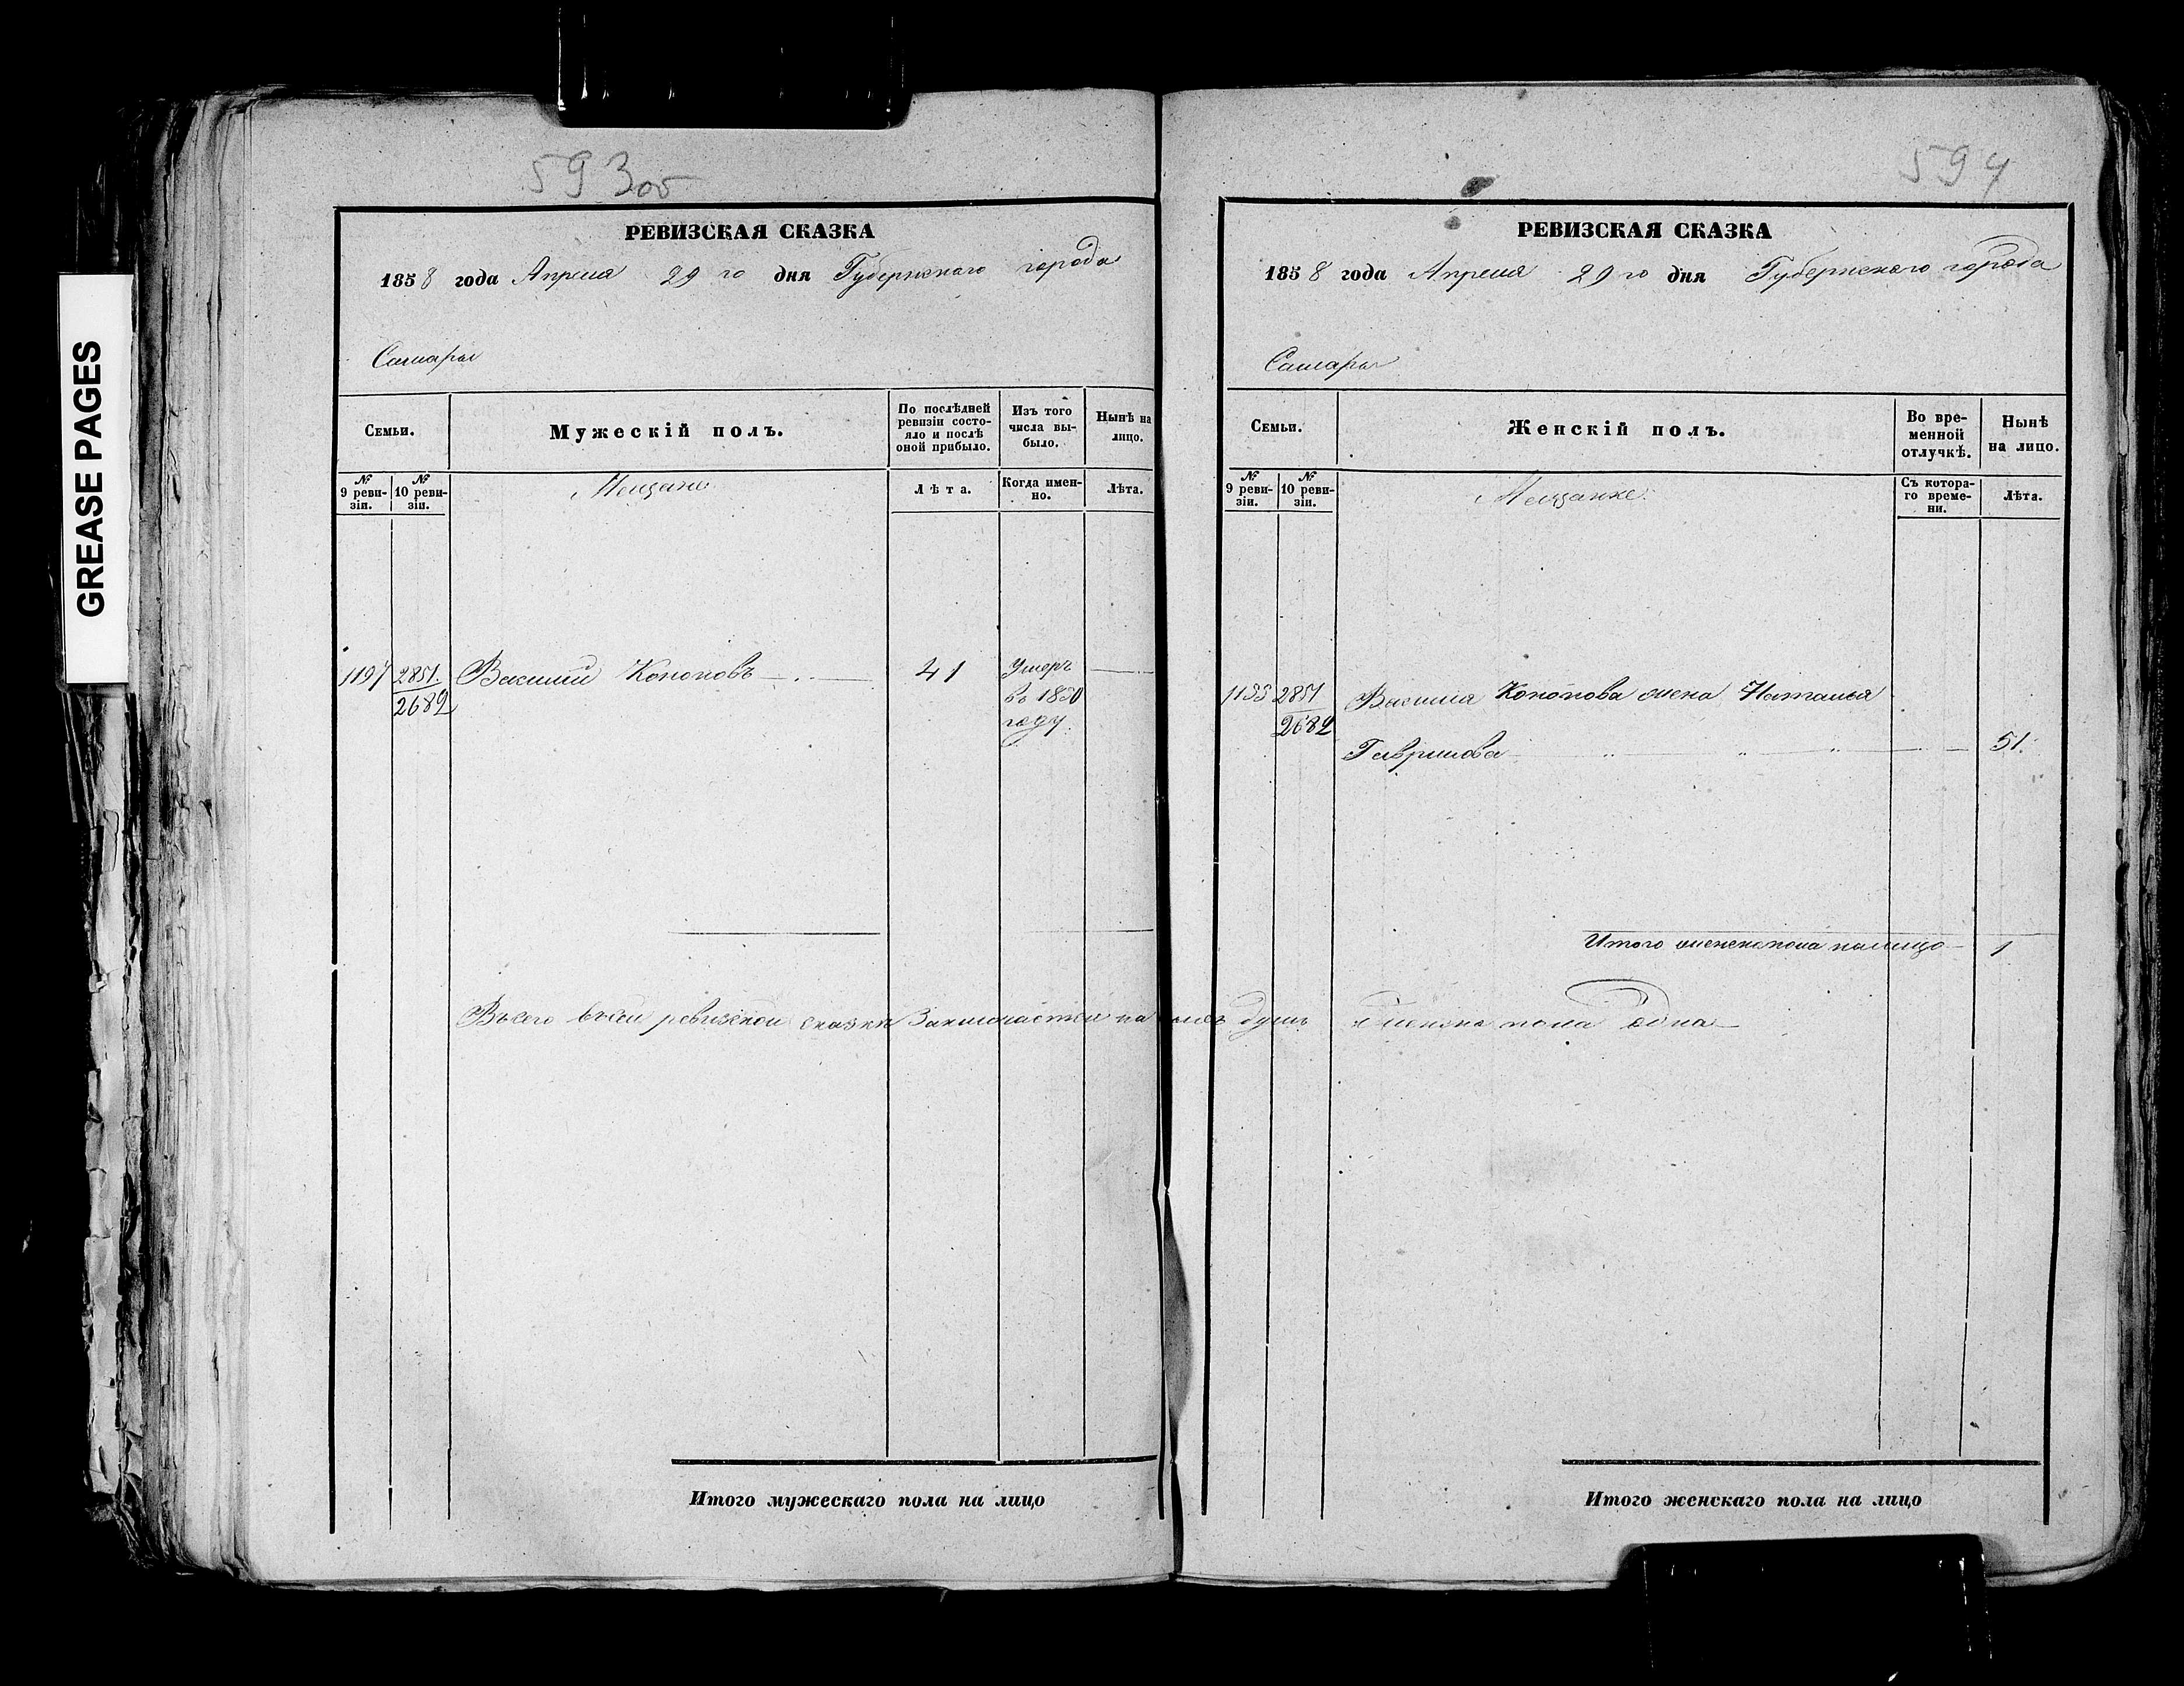 GREASE PAGES
593об
РЕВИЗСКАЯ СКАЗКА
1858 года Апреля 29 го дня Губернскаго города
Самары
Семьи.
Мужескій полъ.
По послѣдней ревизіи состо-
яло и послѣ
оной прибыло.
Изъ того
числа вы-
было.
Нынѣ на
лицо.
№ 9 реви-
зіи.
№ 10 реви-
зіи.
Мещане
Лѣта.
Когда имен-
но.
Лѣта.
1197 2851. Василий Кононовъ 41 Умеръ
2682 въ 1850
году.
Всего въ сей ревизской сказки Заключается на лицо душъ женска пола Одна
Итого мужескаго пола на лицо
594
РЕВИЗСКАЯ СКАЗКА
1858 года Апреля 29 го дня Губернскаго города
Самары
Семьи.
Женскій полъ.
Во вре-
менной
отлучкѣ.
Нынѣ
на лицо.
№ 9 реви-
зіи.
№ 10 реви-
зіи.
Мещанке
Съ котора-
го време-
ни.
Лѣта.
2851 Василия Кононова жена Наталья
2682
Гаврилова 51.
Итого женска пола налицо 1
Итого женскаго пола на лицо